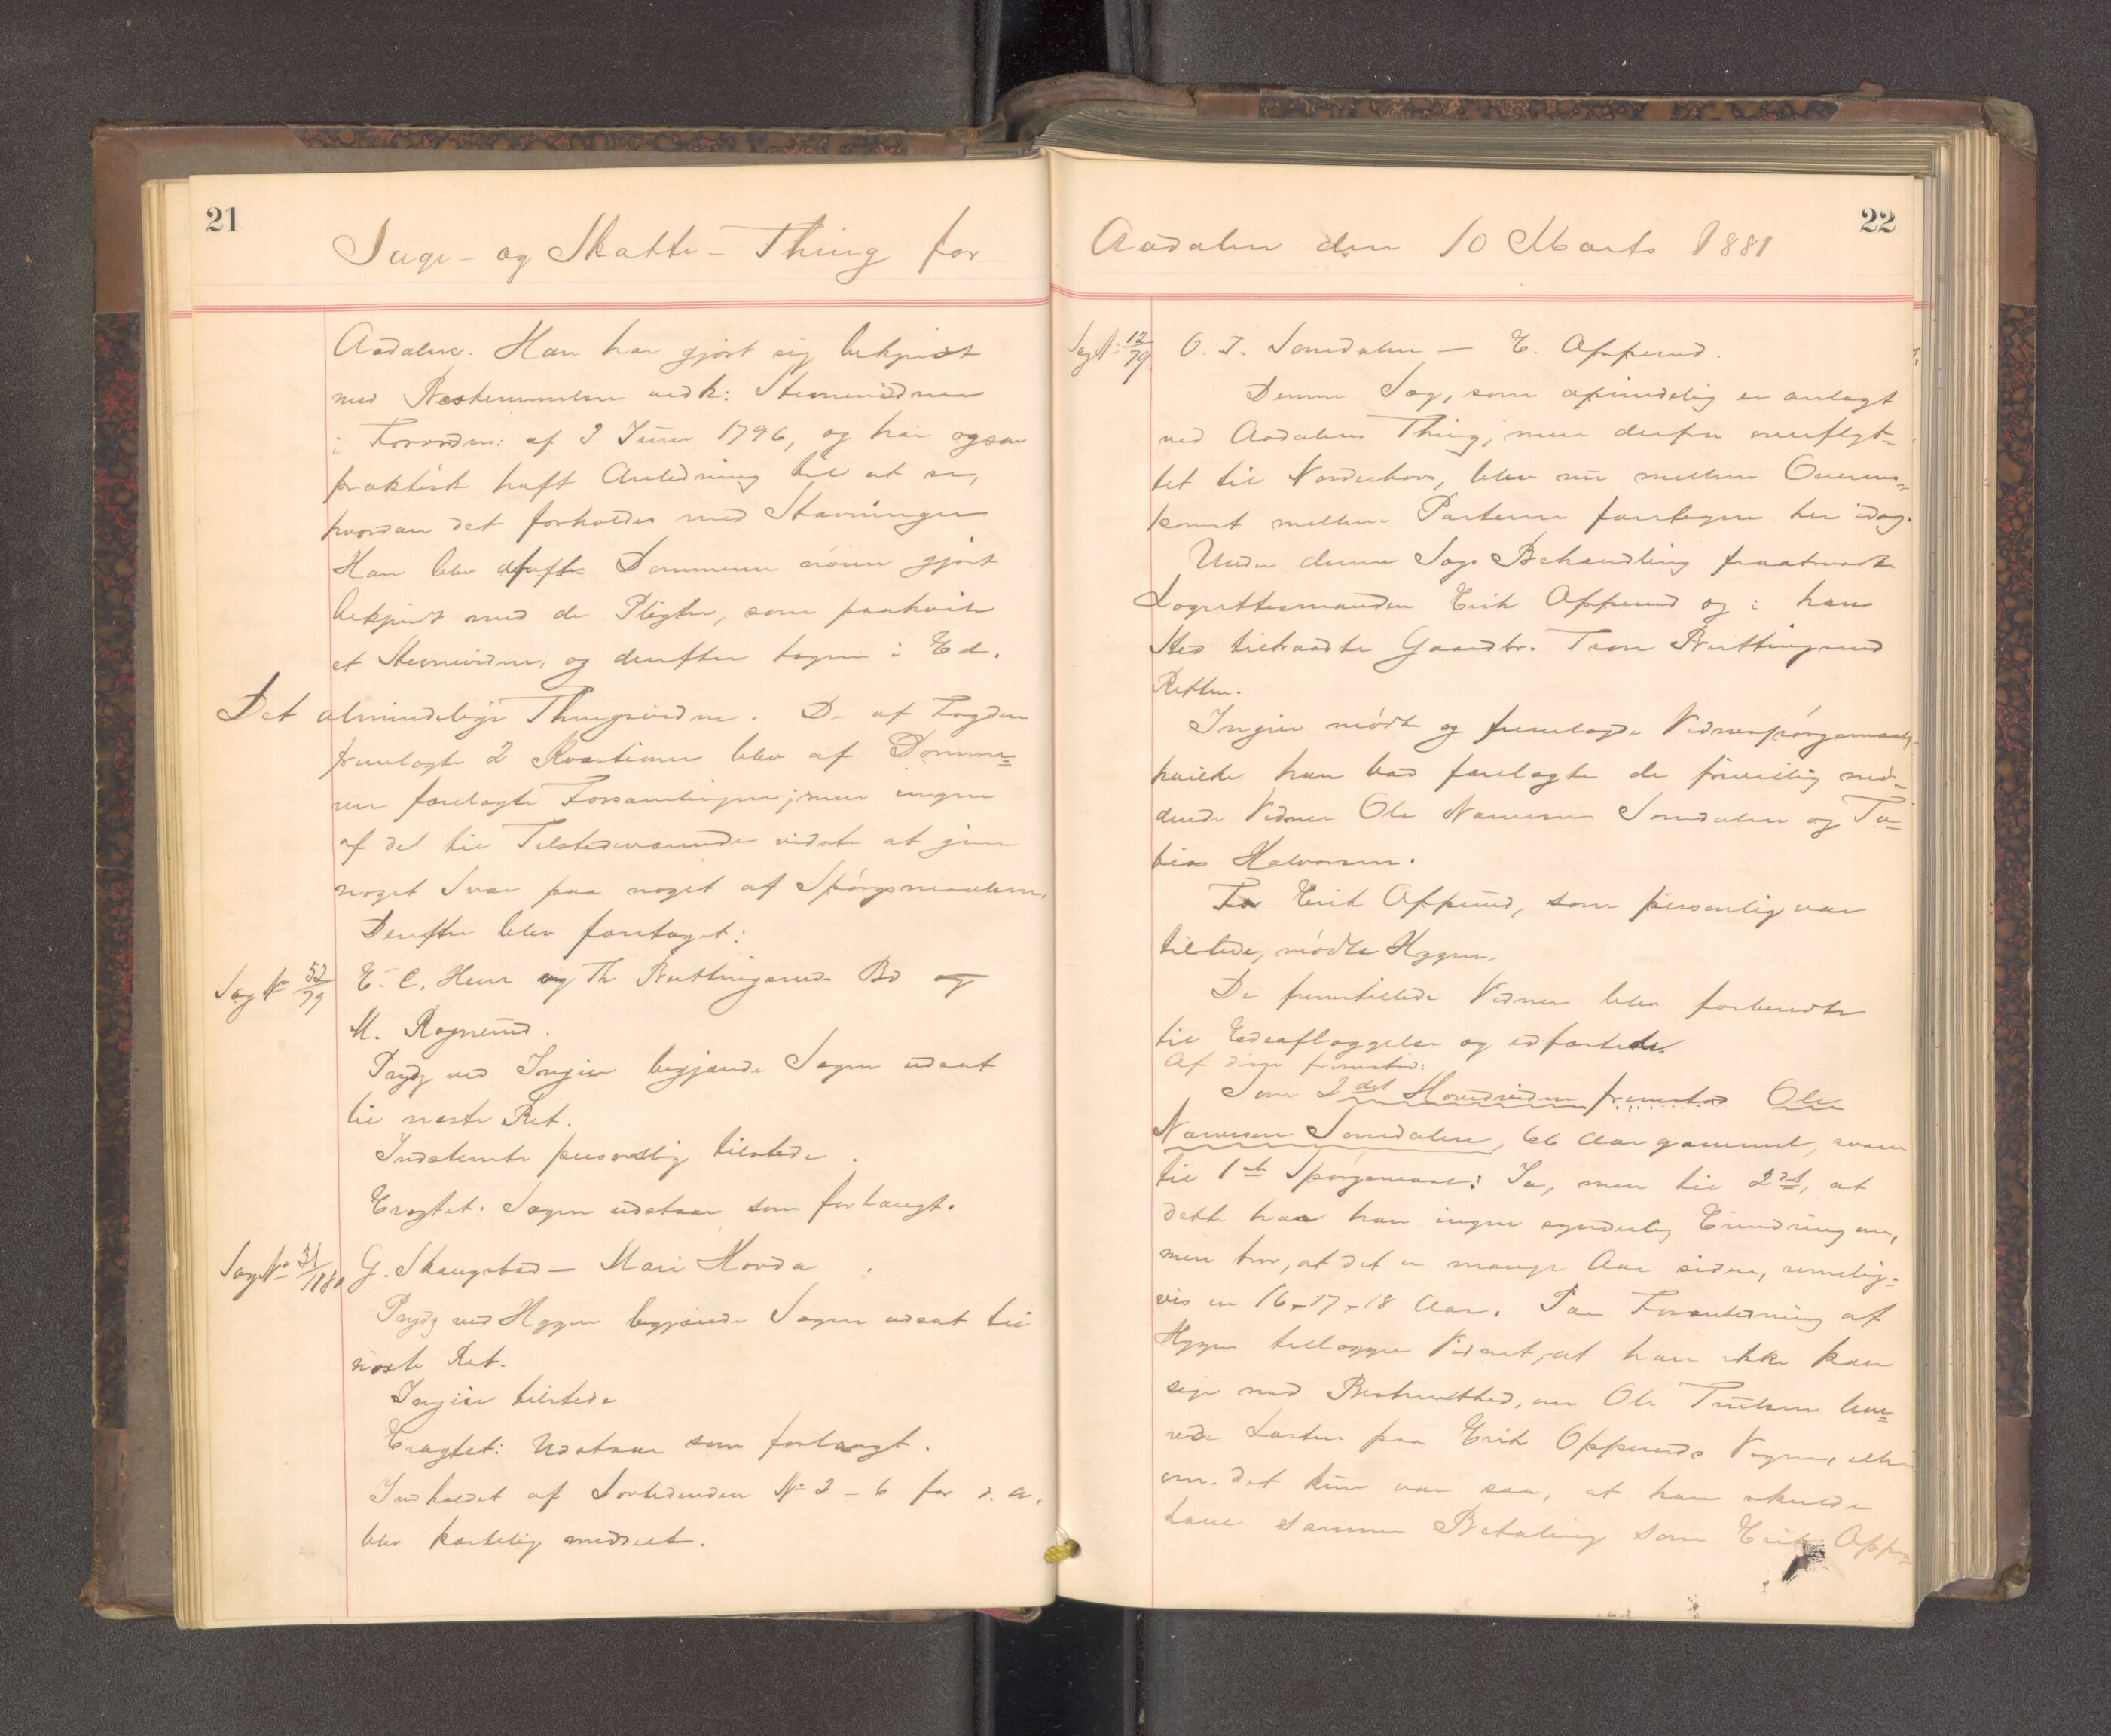 21
Sage- og Skatte-Thing for
Aadalen. Han har gjort sig bekjendt
med Bestemmelsen vedk: Stevnevidner
i Forordn: af 3 Juni 1796, og har ogsaa
praktisk haft Anledning til at se,
hvordan det forholdes med Stævninger
Han blev derefter Dommeren nöiere gjort
bekjendt med de Pligter, som paahvile
et Stevnevidne, og derefter tagen i Ed.
Det almindelige Thingsvidne. De af Fogden
fremlagte 2 Kvæstioner blev af Domme=
ren forelagte Forsamlingen; men ingen
af de til Tilstedeværende vidste at give
noget Svar paa noget af Spörgsmaalene.
Derefter blev foretaget:
Sag No 52/79
E. C. Heen og Th Buttingsruds Bo og
M. Rognerud.
Prydz ved Ingier begjærede Sagen udsat
til næste Ret.
Indstevnte personlig tilstede.
Eragtet: Sagen udstaar som forlangt.
Sag No 31/1880
G. Skaugstad — Mari Hovda.
Prydz ved Hygen begjærede Sagen udsat til
næste Ret.
Ingier tilstede
Eragtet: Udstaar som forlangt.
Indholdet af Lovtidenden No 3 - 6 for d. A.
blev kortelig meddelt.
22
Aadalen den 10 Marts 1881
Sag No 12/79
O. T. Somdalen — E. Opperud.
Denne Sag, som oprindelig er anlagt
ved Aadalens Thing, men derfra overflyt=
tet til Norderhov, blev nu mellem Overens=
komst mellem Parterne foretagen her idag.
Under denne Sags Behandling fraatraadte
Lagrettesmanden Erik Opperud og i hans
Sted tiltraadte Gaardbr. Tron Buttingsrud
Retten.
Ingier mödte og fremlagde Vidnespörgsmaal,
hvilke han bad forelagte de frivillig mö=
dende Vidner Ole Narvesen Somdalen og To=
bias Halvorsen.
For Erik Opperud, som personlig var
tilstede, mödte Hygen.
De fremstillede Vidner blev forberedte
til Edsaflæggelse og edfæstede.
Af disse fremstod:
Som 2det Hovedvidne fremstod Ole
Narvesen Somdalen, 66 Aar gammel, svarer
til 1ste Spörgsmaal: Ja, men til 2det, at
dette har han ingen synderlig Erindring om,
men tror, at det er mange Aar siden, rimelig=
vis en 16-17-18 Aar. Paa Foranledning af
Hygen tillægger Vidnet, at han ikke kan
sige med Bestemthed, om Ole Truelsen leve=
rede Lasten paa Erik Opperuds Vegne, eller
om det kun var saa, at han skulde
have samme Betaling som Erik Oppe=